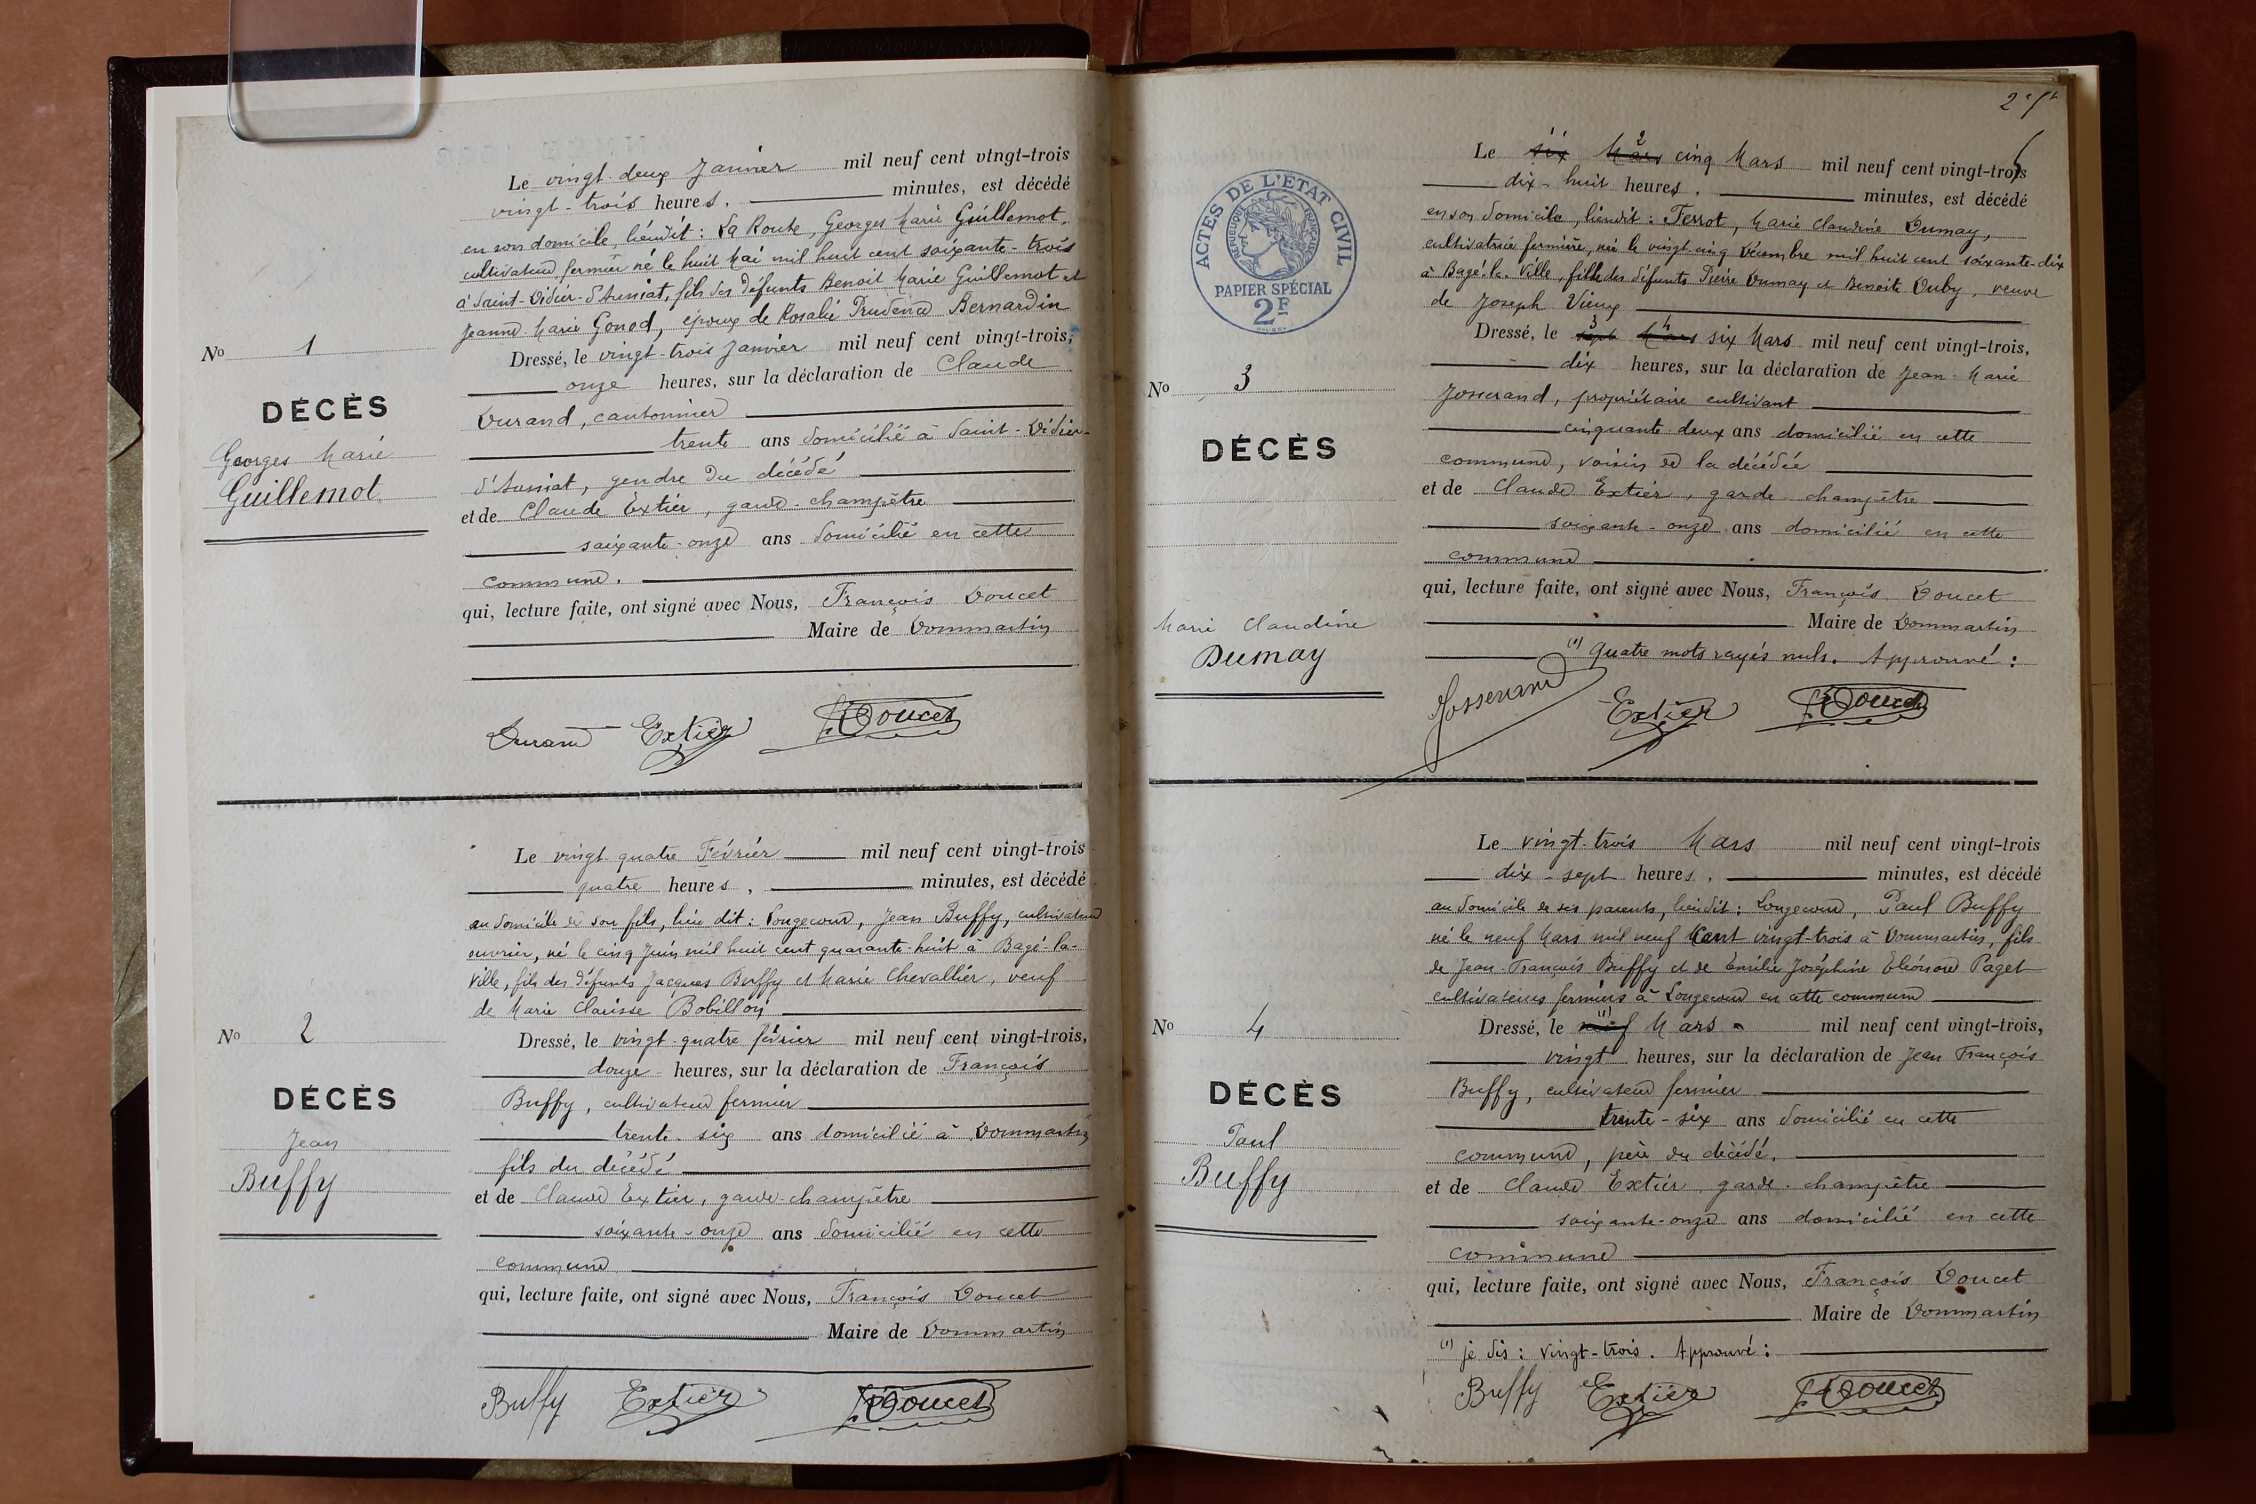 Le vingt-deux Janvier mil neuf cent vingt-trois
vingt-trois heures, minutes, est décédé
en son domicile, lieudit : La Route, Georges Marie Guillemot,
cultivateur fermier né le huit Mai mil huit cent soixante-trois
à Saint-Didier-d'Aussiat, fils des défunts Benoit Marie Guillemot et
Jeanne-Marie Gonod, époux de Rosalie Prudence Bernardin
Dressé, le vingt-trois Janvier mil neuf cent vingt-trois,
onze heures, sur la déclaration de Claude
Durand, cantonnier
trente ans domicilié à Saint-Didier-
d'Aussiat, gendre du décédé
et de Claude Extier, garde-champêtre
soixante-onze ans domicilié en cette
commune.
qui, lecture faite, ont signé avec Nous, François Doucet
Maire de Dommartin
No 1
DÉCÈS
Georges Marie
Guillemot
Durand Extier F. Doucet
Le vingt-quatre Février mil neuf cent vingt-trois
quatre heures, minutes, est décédé
au domicile de son fils, lieu dit : Longecour, Jean Buffy, cultivateur
ouvrier, né le cinq Juin mil huit cent quarante-huit à Bagé-la-
Ville, fils des défunts Jacques Buffy et Marie Chevallier, veuf
de Marie Clarisse Bobillon
Dressé, le vingt-quatre février mil neuf cent vingt-trois,
douze heures, sur la déclaration de François
Buffy, cultivateur fermier
trente-six ans domicilié à Dommartin
fils du décédé
et de Claude Extier, garde-champêtre
soixante-onze ans domicilié en cette
commune
qui, lecture faite, ont signé avec Nous, François Doucet
Maire de Dommartin
No 2
DÉCÈS
Jean
Buffy
Buffy Extier F. Doucet
ACTES DE L'ÉTAT CIVIL
RÉPUBLIQUE FRANÇAISE
PAPIER SPÉCIAL
2F
Le six Mars cinq Mars mil neuf cent vingt-trois
dix-huit heures, minutes, est décédé
en son domicile, lieudit : Ferrot, Marie Claudine Dumay,
cultivatrice fermière, née le vingt-cinq Décembre mil huit cent soixante-dix
à Bagé-la-Ville, fille des défunts Pierre Dumay et Benoite Duby, veuve
de Joseph Vieux
Dressé, le sept Mars six Mars mil neuf cent vingt-trois,
dix heures, sur la déclaration de Jean-Marie
Josserand, propriétaire cultivant
cinquante-deux ans domicilié en cette
commune, voisin de la décédée
et de Claude Extier, garde-champêtre
soixante-onze ans domicilié en cette
commune
qui, lecture faite, ont signé avec Nous, François Doucet
Maire de Dommartin
(1) Quatre mots rayés nuls. Approuvé :
No 3
DÉCÈS
Marie Claudine
Dumay
Josserand Extier F. Doucet
Le vingt-trois Mars mil neuf cent vingt-trois
dix-sept heures, minutes, est décédé
au domicile de ses parents, lieudit : Longecour, Paul Buffy
né le neuf Mars mil neuf Cent vingt-trois à Dommartin, fils
de Jean-François Buffy et de Emilie Joséphine Eléonore Paget
cultivateurs fermiers à Longecour en cette commune
Dressé, le neuf (1) Mars mil neuf cent vingt-trois,
vingt heures, sur la déclaration de Jean François
Buffy, cultivateur fermier
trente-six ans domicilié en cette
commune, père du décédé.
et de Claude Extier, garde-champêtre
soixante-onze ans domicilié en cette
commune
qui, lecture faite, ont signé avec Nous, François Doucet
Maire de Dommartin
(1) je dis : vingt-trois. Approuvé :
No 4
DÉCÈS
Paul
Buffy
Buffy Extier F. Doucet